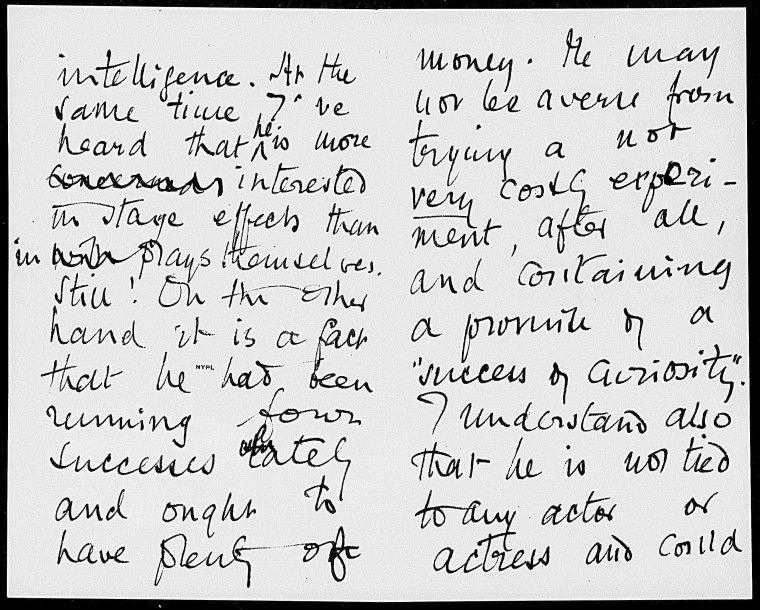 intelligence. At the
same time I've
heard that he is more
interested
in stage effects than
in plays themselves.
Still! On the other
hand it is a fact
that he had been
NYPL
running four
successes lately
and ought to
have plenty of
money. He may
not be averse from
trying a not
very costly experi-
ment, after all,
and containing
a promise of a
"success of curiosity".
I understand also
that he is not tied
to any actor or
actress and could